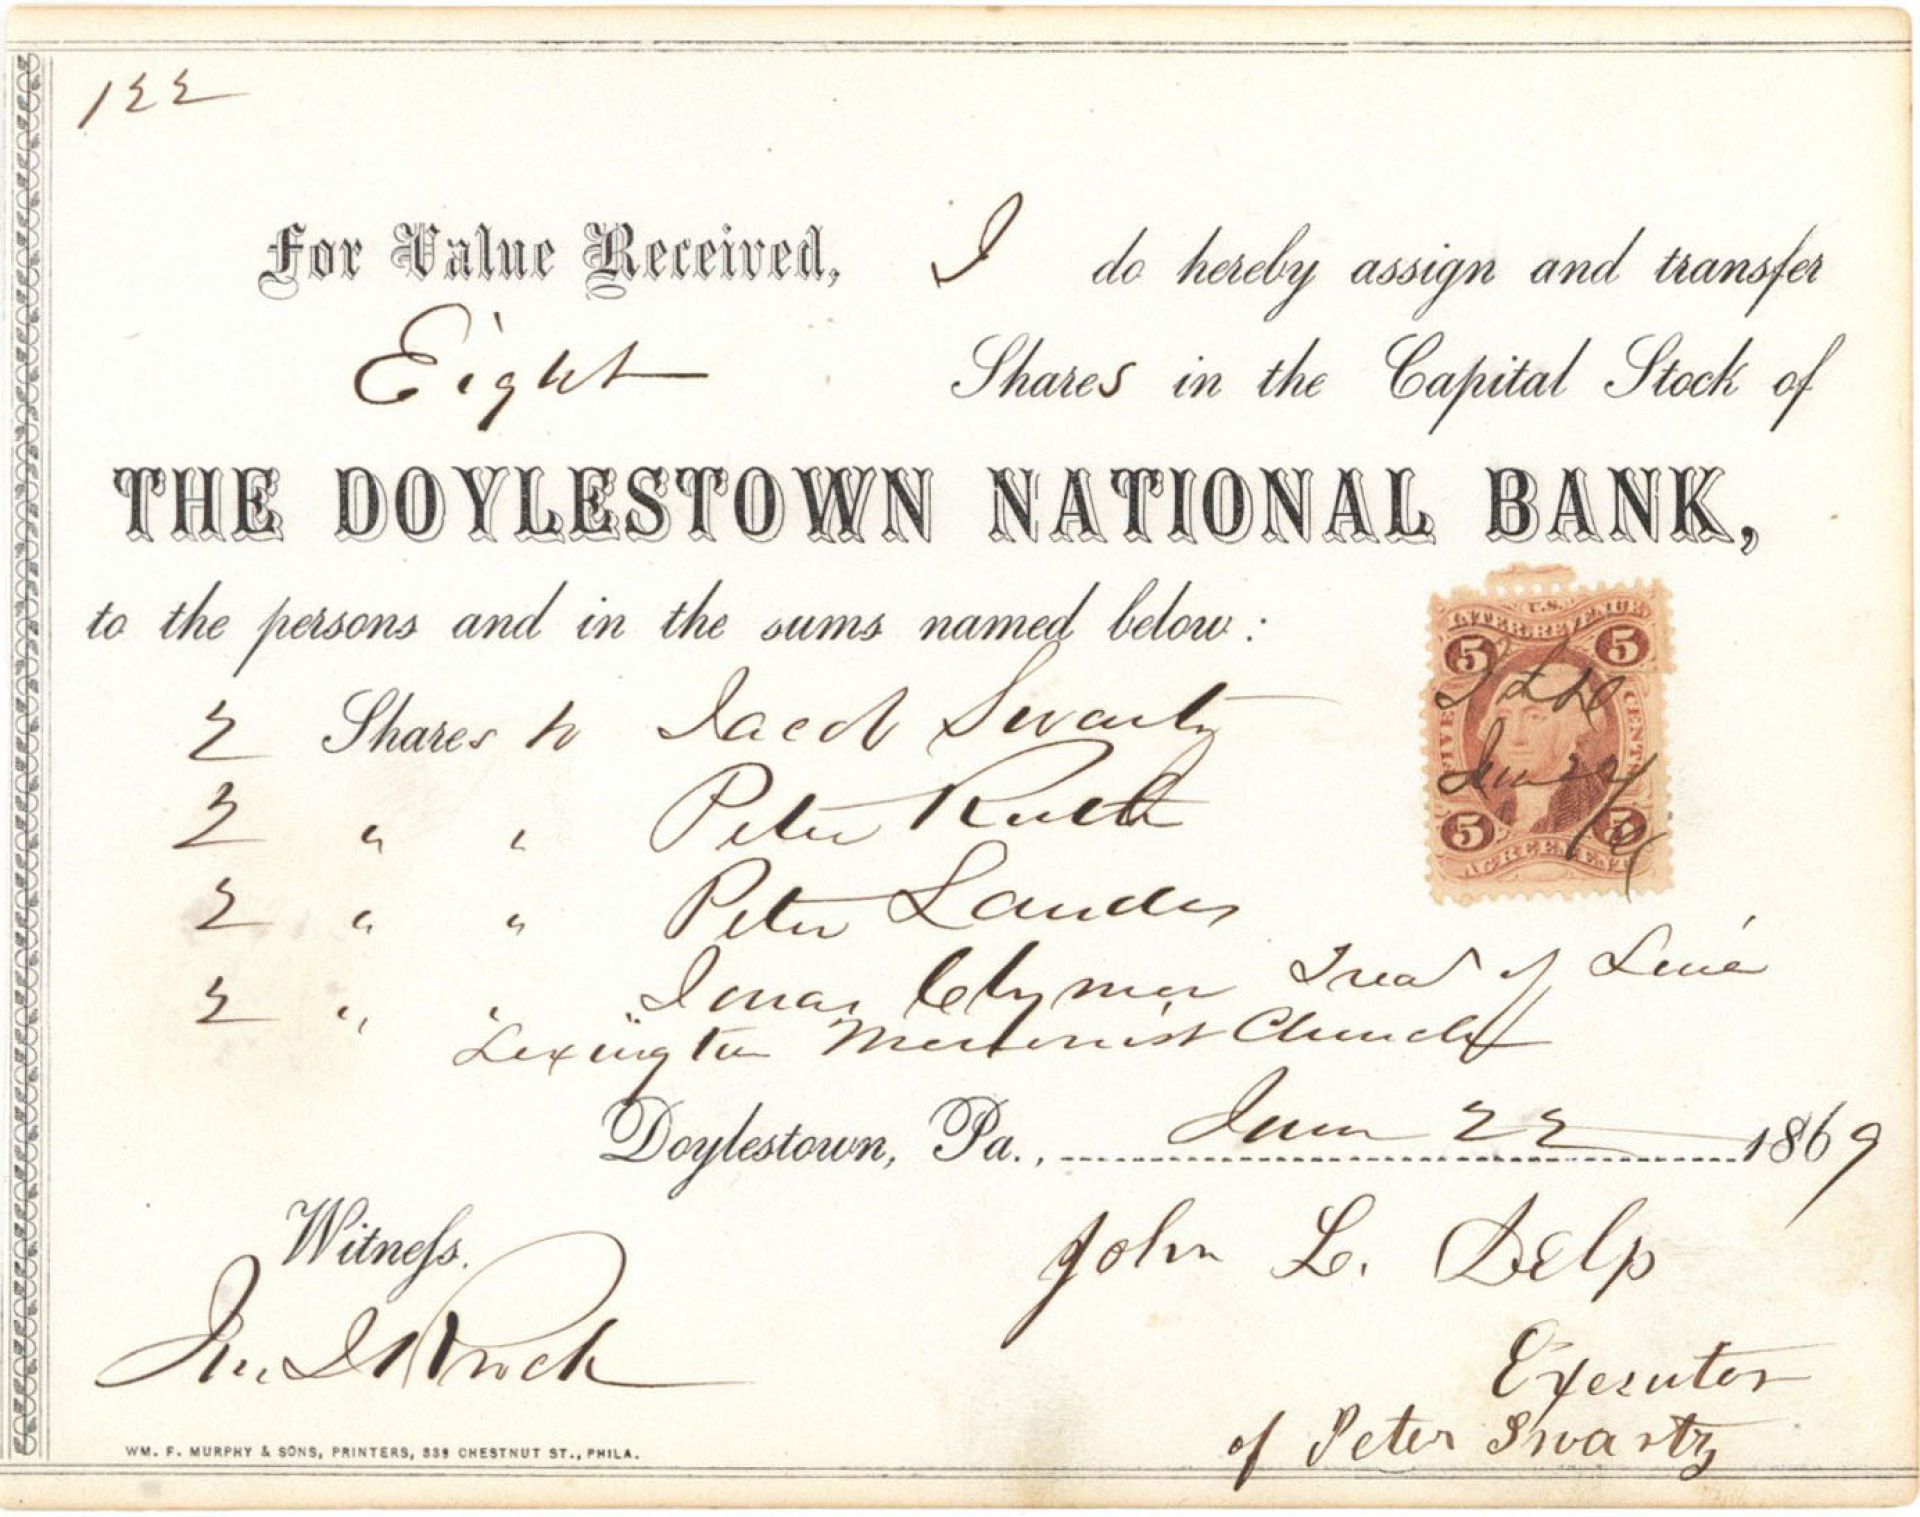 122
For Value Received, I do hereby assign and transfer
Eight Shares in the Capital Stock of
THE DOYLESTOWN NATIONAL BANK,
to the persons and in the sums named below:
2 Shares to Jacob Swartz
2 " " Peter Ruth
2 " " Peter Landes
2 " " Jonas Clymer Treas of Line
Lexington Menonist Church
Doylestown, Pa., June 22 1869
Witness.
John L. Delp
Executor
of Peter Swartz
WM. F. MURPHY & SONS, PRINTERS, 339 CHESTNUT ST., PHILA.
U.S.
INTER. REVENUE
5 5
FIVE CENTS
June 22/69
5 5
AGREEMENT